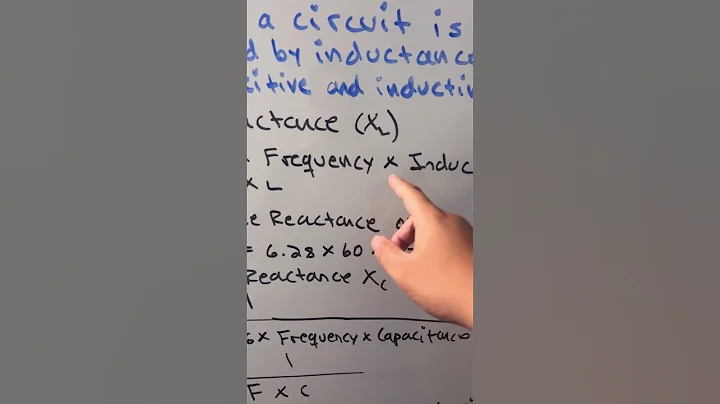 a circuit is
d by inductance
citive and inductiv
actance (XL)
Frequency x Induc
x L
e Reactance
= 6.28 x 60
Reactance Xc
1
x Frequency x Capacitance
1
F x C